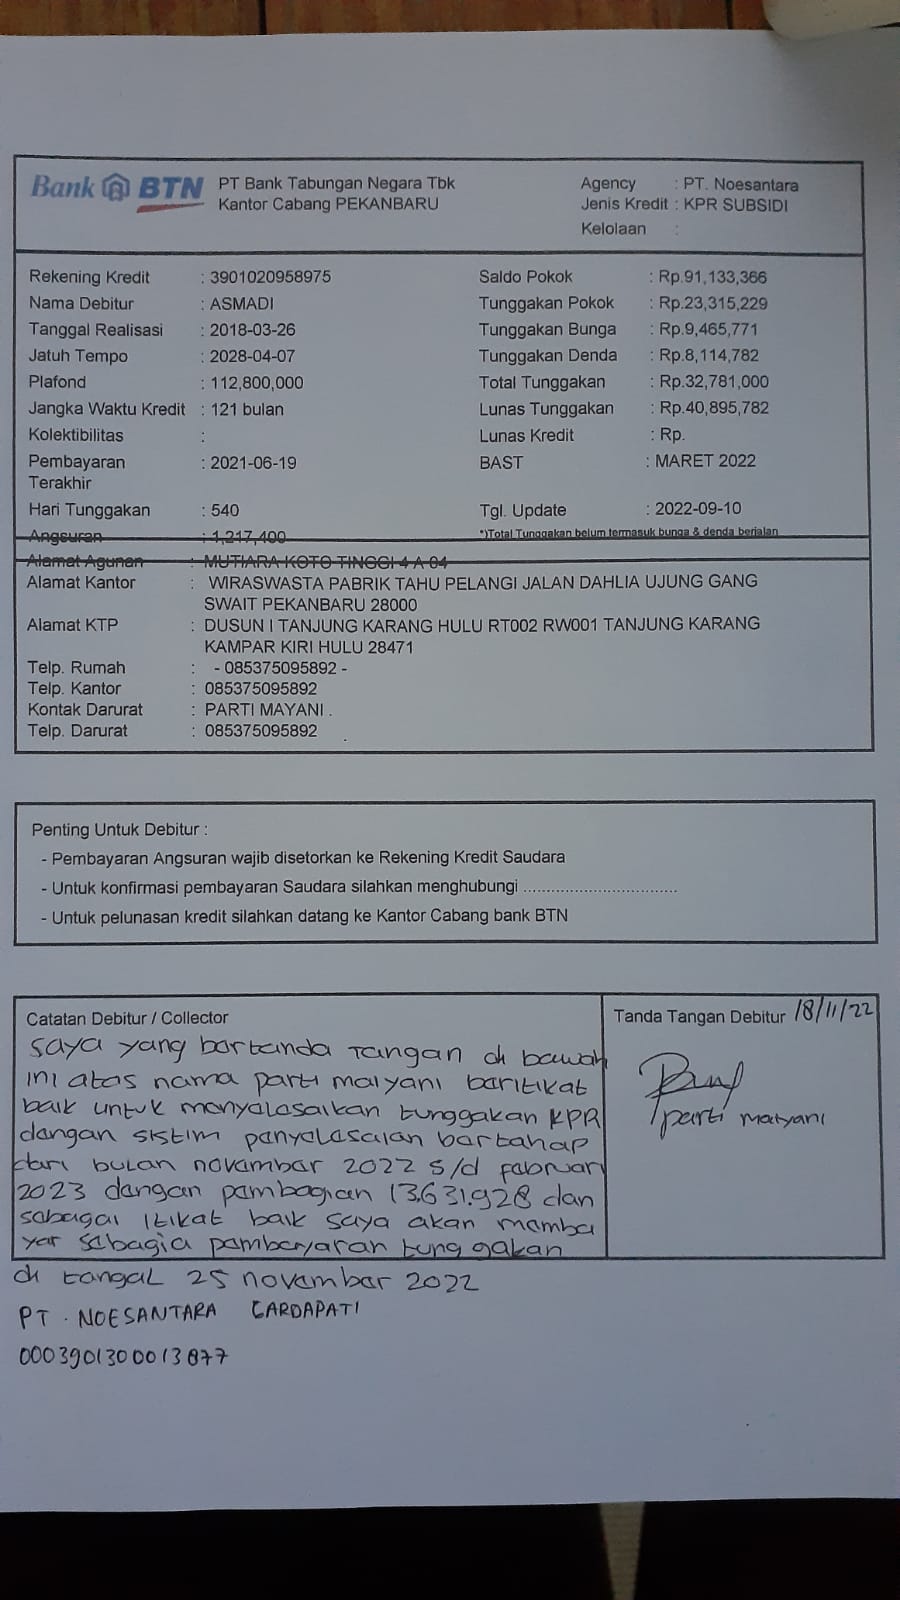 Bank BTN
PT Bank Tabungan Negara Tbk
Kantor Cabang PEKANBARU
Agency : PT. Noesantara
Jenis Kredit : KPR SUBSIDI
Kelolaan :
Rekening Kredit : 3901020958975
Nama Debitur : ASMADI
Tanggal Realisasi : 2018-03-26
Jatuh Tempo : 2028-04-07
Plafond : 112,800,000
Jangka Waktu Kredit : 121 bulan
Kolektibilitas :
Pembayaran : 2021-06-19
Terakhir
Hari Tunggakan : 540
Angsuran : 1,217,400
Saldo Pokok : Rp.91,133,366
Tunggakan Pokok : Rp.23,315,229
Tunggakan Bunga : Rp.9,465,771
Tunggakan Denda : Rp.8,114,782
Total Tunggakan : Rp.32,781,000
Lunas Tunggakan : Rp.40,895,782
Lunas Kredit : Rp.
BAST : MARET 2022
Tgl. Update : 2022-09-10
*)Total Tunggakan belum termasuk bunga & denda berjalan
Alamat Agunan : MUTIARA KOTO TINGGI 4 A 04
Alamat Kantor : WIRASWASTA PABRIK TAHU PELANGI JALAN DAHLIA UJUNG GANG
SWAIT PEKANBARU 28000
Alamat KTP : DUSUN I TANJUNG KARANG HULU RT002 RW001 TANJUNG KARANG
KAMPAR KIRI HULU 28471
Telp. Rumah : - 085375095892 -
Telp. Kantor : 085375095892
Kontak Darurat : PARTI MAYANI .
Telp. Darurat : 085375095892
Penting Untuk Debitur :
- Pembayaran Angsuran wajib disetorkan ke Rekening Kredit Saudara
- Untuk konfirmasi pembayaran Saudara silahkan menghubungi ..................................
- Untuk pelunasan kredit silahkan datang ke Kantor Cabang bank BTN
Catatan Debitur / Collector
saya yang bertanda Tangan di bawah
ini atas nama parti maiyani beritikat
baik untuk menyelesaikan tunggakan KPR
dengan sistim penyelesaian bertahap
dari bulan november 2022 s/d februari
2023 dengan pembagian 13.631.928 dan
sebagai itikat baik saya akan memba
yar sebagia pembayaran tunggakan
di tanggal 25 november 2022
PT. NOESANTARA CARDAPATI
0003901300013877
Tanda Tangan Debitur 18/11/22
parti maiyani